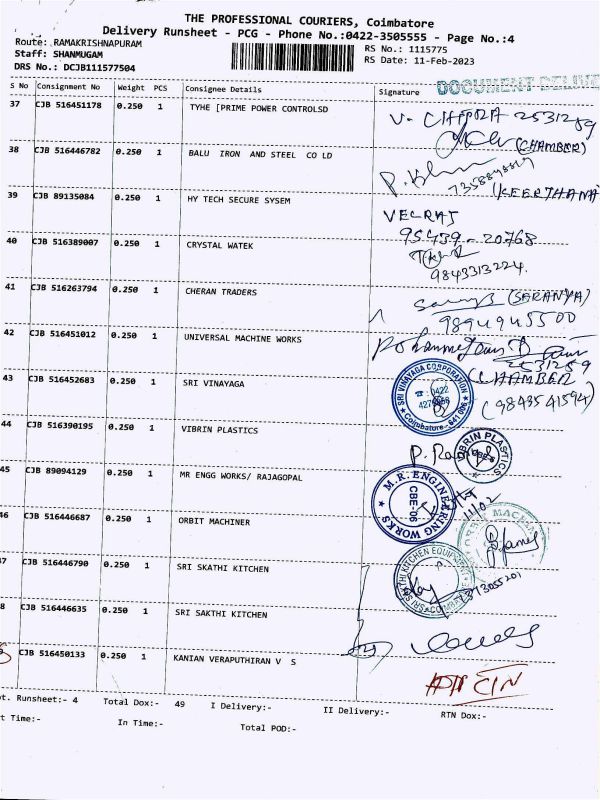 THE PROFESSIONAL COURIERS, Coimbatore
Delivery Runsheet - PCG - Phone No.:0422-3505555 - Page No.:4
Route: RAMAKRISHNAPURAM
RS No.: 1115775
Staff: SHANMUGAM
RS Date: 11-Feb-2023
DRS No.: DCJB111577504
DOCUMENT DELIVE
S No Consignment No Weight PCS Consignee Details Signature
37 CJB 516451178 0.250 1 TYHE [PRIME POWER CONTROLSD
2531259
(CHAMBER)
38 CJB 516446782 0.250 1 BALU IRON AND STEEL CO LD
(KEERTHANA
39 CJB 89135084 0.250 1 HY TECH SECURE SYSEM
VELRAJ
95439-20768
40 CJB 516389007 0.250 1 CRYSTAL WATEK
9843313224.
41 CJB 516263794 0.250 1 CHERAN TRADERS
(SARANYA)
9894945500
42 CJB 516451012 0.250 1 UNIVERSAL MACHINE WORKS
2531259
(CHAMBER
43 CJB 516452683 0.250 1 SRI VINAYAGA
SRI VINAYAGA CORPORATION
Coimbatore - 641 006
(9843541594)
44 CJB 516390195 0.250 1 VIBRIN PLASTICS
VIBRIN PLASTICS
45 CJB 89094129 0.250 1 MR ENGG WORKS/ RAJAGOPAL
M.R. ENGINEERING WORKS
CBE-06
11/02
46 CJB 516446687 0.250 1 ORBIT MACHINER
ORBIT MACHINE
47 CJB 516446790 0.250 1 SRI SKATHI KITCHEN
SRI SAKTHI KITCHEN EQUIPMENT
8 CJB 516446635 0.250 1 SRI SAKTHI KITCHEN
CJB 516450133 0.250 1 KANIAN VERAPUTHIRAN V S
ot. Runsheet:- 4 Total Dox:- 49 I Delivery:- II Delivery:- RTN Dox:-
t Time:- In Time:- Total POD:-